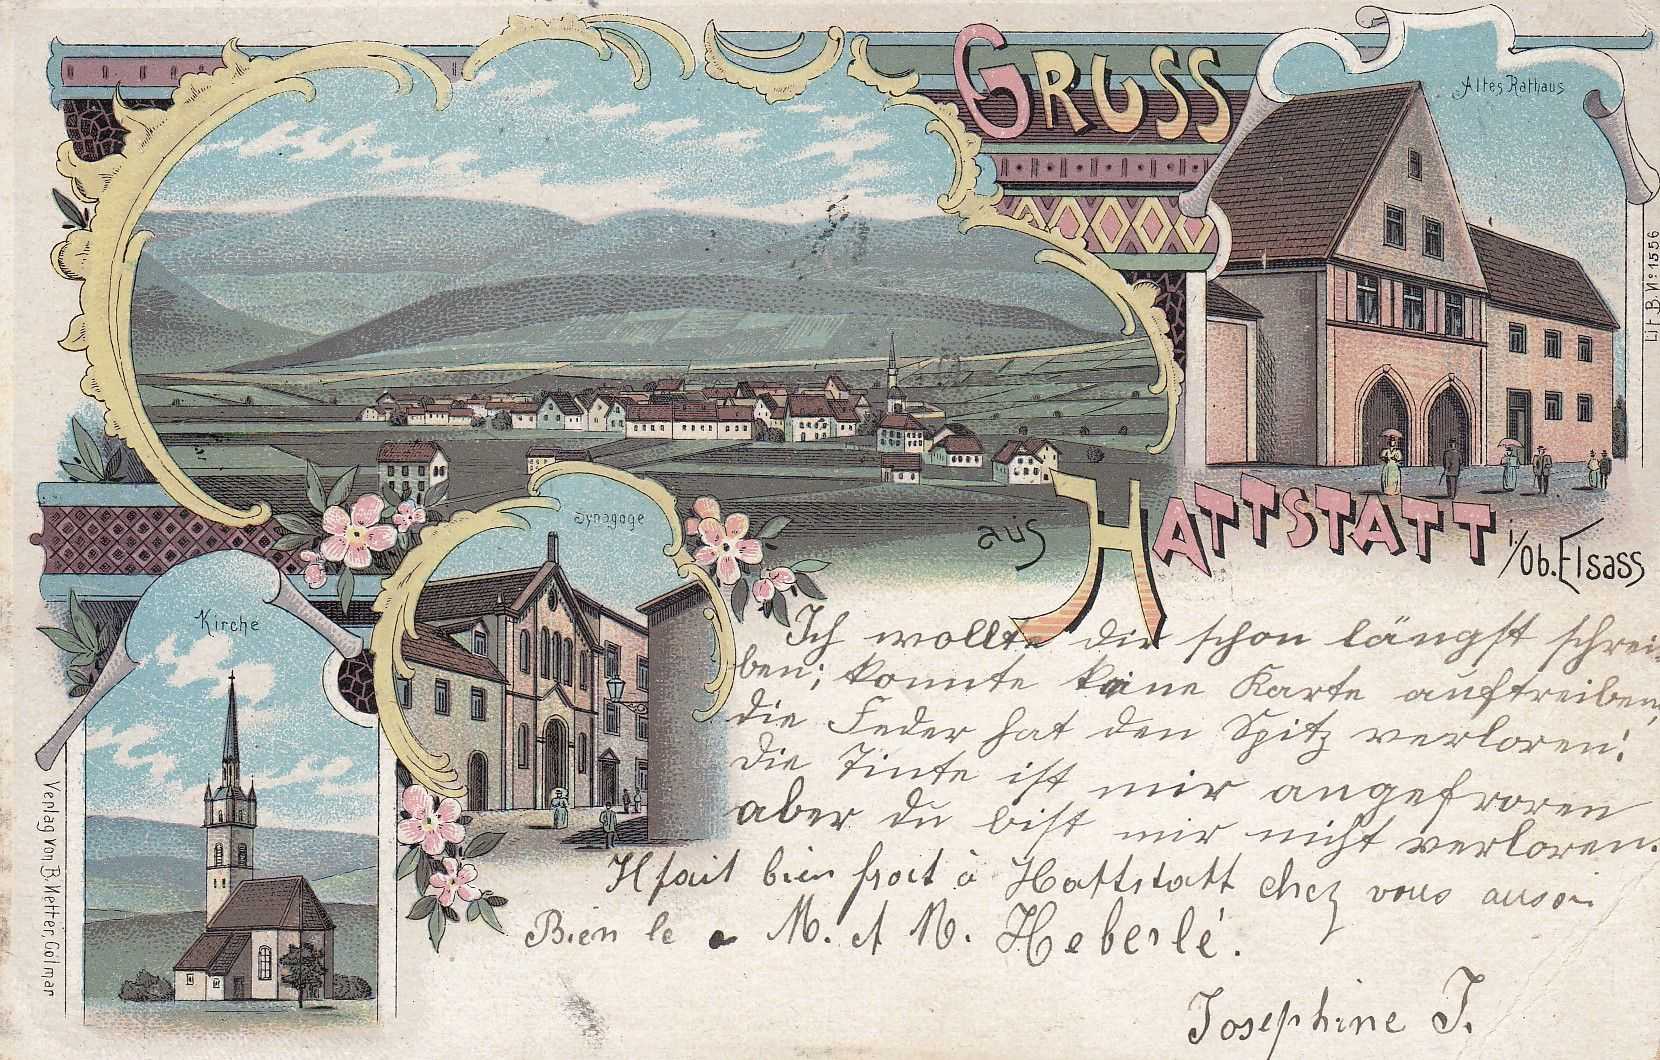 GRUSS
aus HATTSTATT i./Ob. Elsass
Altes Rathaus
Synagoge
Kirche
Lit. B. No 1556
Verlag von B. Netter, Colmar
Ich wollte dir schon längst schrei-
ben; konnte keine Karte auftreiben,
die Feder hat den Spitz verloren:
die Tinte ist mir angefroren
aber du bist mir nicht verloren.
Il fait bien froit à Hattstatt chez vous aussi
Bien le M. et M. Heberlé.
Josephine J.